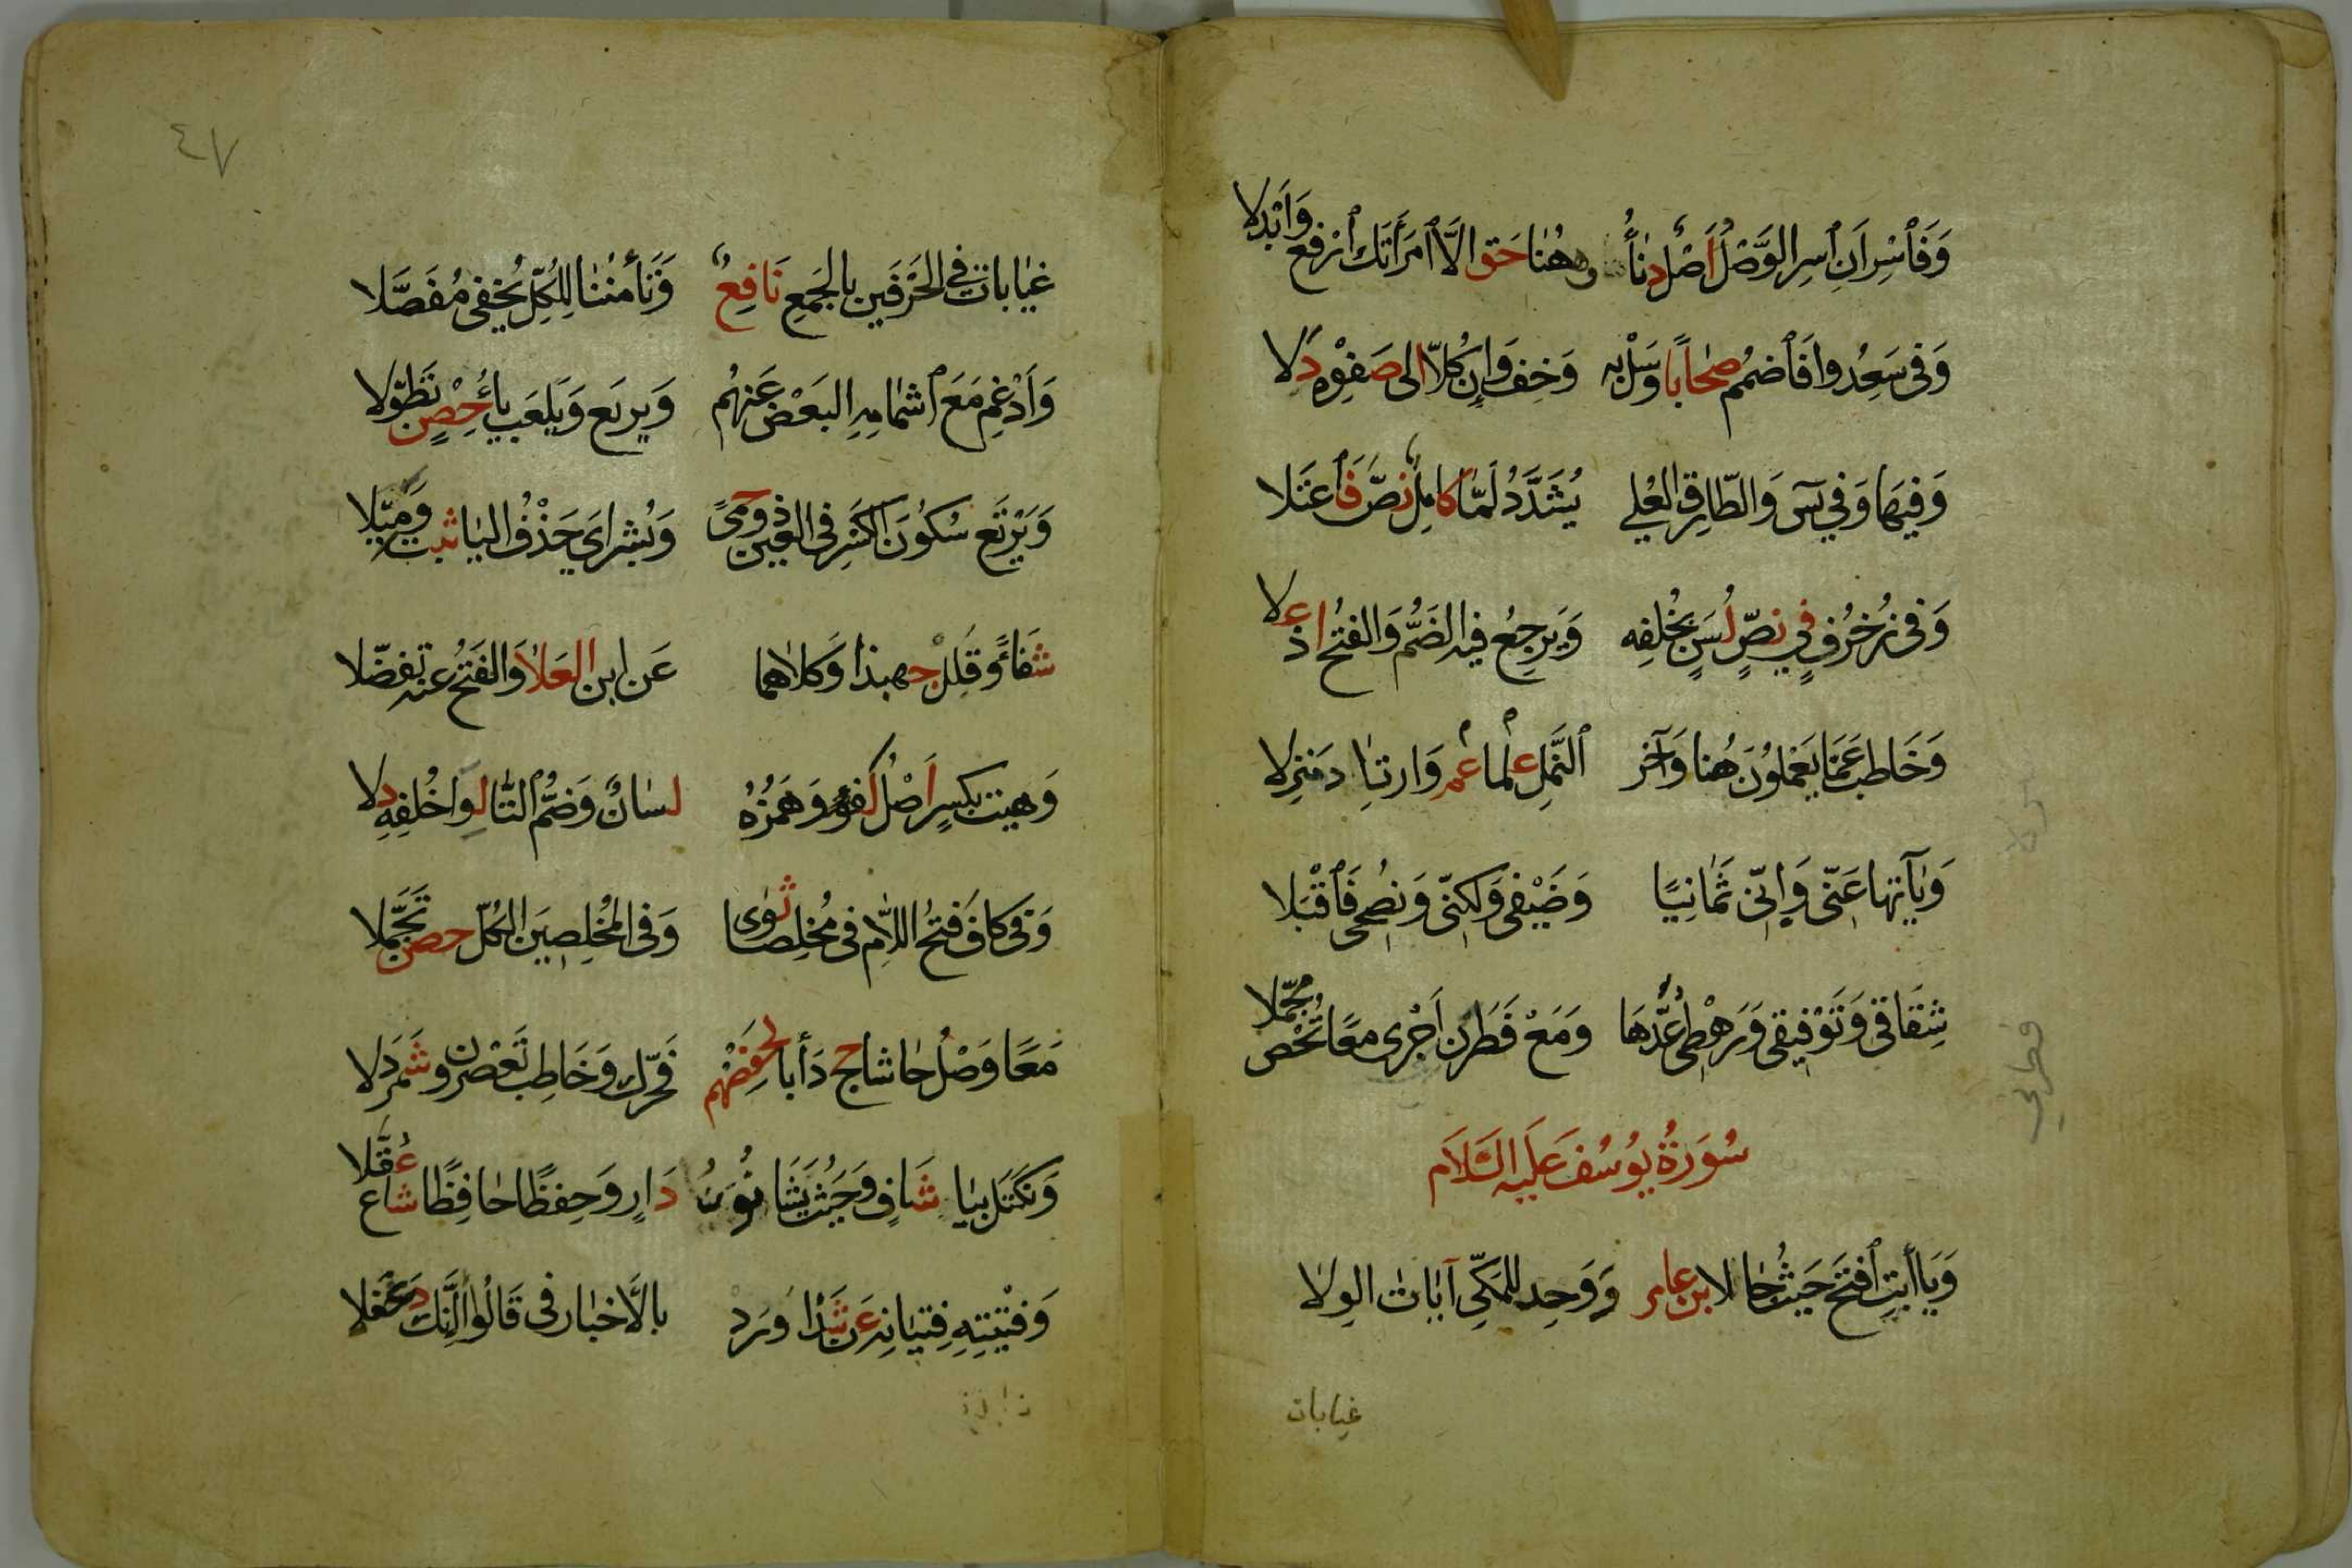 وَفَٱسْرِ اَنِ ٱسرِ الوَصْلُ اَصْلٌ دنَا وهٰهُنا حَق الَّا ٱمرَأَتَك ٱرْفع وَاَبْدِلا
وَفى سَعِدُوا فَٱضمُم صِحَابًا وَسَلْ به وَخِف وَاِن كُلًّا الى صَفْوِه دَلا
وَفِيهَا وَفي يسٓ وَالطّارِق العُلي يُشَدَّدُ لَمَّا كامِلٌ نصَّ فَٱعتَلا
وَفى زُخرُفٍ في نصٍّ لُسَنٍ بخُلفِه وَيَرجِعُ فيه الضَمُّ وَالفتحُ اذ عَلا
وَخَاطب عَمَّا يَعْمَلوُنَ هُنا وَآخر ٱلنَّملِ عِلما عَم وَارتادَ مَنزِلا
وَيآاتها عَنّى وَاِنّى ثَمَانِيًا وَضَيْفى وَلكنّى وَنصُحى فَٱقْبَلا
شِقَاقى وَتَوْفيِقى وَرَهْطى عُدَّهَا وَمَعْ فَطَرَن اَجْرى معًا تُحْص مُجمّلا
سُورَةُ يوُسُفَ عَليَه السَّلاَم
وَيَا أَبتِ ٱفتَح حَيثُ جا لابن عامر وَوَحِد للمَكِّى آيَات الوِلا
غيابات
٤٧
غيَابات في الحَرَفَين بالجَمعِ نَافعٌ وَتَأمَنُنا لِلكُلِّ يُخفى مُفَصَّلا
وَاَدْغِم مَعَ ٱشمَامِهِ البَعْض عَنهُم وَيرتَع وَيَلعَب ياءُ حِصْنٍ تَطَوّلا
وَيَرْتَع سُكُونَ الكَسرِ فى العَين ذو حِمىً وَبُشراىَ حَذْفُ اليا ثبت وَمُيّلا
شفَاءً وقَلِلْ جهبذا وَكلاهما عَن ابن العَلا وَالفَتحُ عنه تفضّلا
وَهيت بكسرٍ اَصْلُ كفؤٍ وَهَمزُهُ لسانٌ وَضمُّ التّا لِوا خُلفِهِ دلا
وَفى كافَ فَتحُ اللّامِ فى مُخلِصا ثوى وَفى المُخلِصِينَ الكُلّ حصن تَجَّملا
مَعًا وَصْلُ حَاشا حج دَأبا لحفضهم فَحَرّك وَخَاطِب تَعْصرِن شَمَردَلا
وَنَكتَل بيَا شَافٍ وَحَيثُ يَشَا نوُنُ دَارٍ وَحِفظًا حَافِظًا شاع عُقَّلا
وَفتْيَتِهِ فِتيَانِهِ عَن شَذا وَرَدْ بالَاخبَار فى قَالُوا أَئِنَّك دَغفَلا